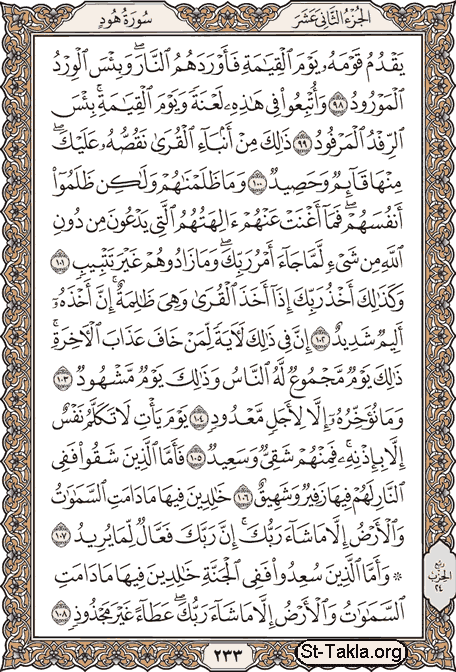 سُورَةُ هُودٍ
الجُزْءُ الثَّانِي عَشَرَ
يَقْدُمُ قَوْمَهُۥ يَوْمَ ٱلْقِيَٰمَةِ فَأَوْرَدَهُمُ ٱلنَّارَۖ وَبِئْسَ ٱلْوِرْدُ
ٱلْمَوْرُودُ ٩٨ وَأُتْبِعُوا۟ فِى هَٰذِهِۦ لَعْنَةً وَيَوْمَ ٱلْقِيَٰمَةِۚ بِئْسَ
ٱلرِّفْدُ ٱلْمَرْفُودُ ٩٩ ذَٰلِكَ مِنْ أَنۢبَآءِ ٱلْقُرَىٰ نَقُصُّهُۥ عَلَيْكَۖ
مِنْهَا قَآئِمٌ وَحَصِيدٌ ١٠٠ وَمَا ظَلَمْنَٰهُمْ وَلَٰكِن ظَلَمُوٓا۟
أَنفُسَهُمْۖ فَمَآ أَغْنَتْ عَنْهُمْ ءَالِهَتُهُمُ ٱلَّتِى يَدْعُونَ مِن دُونِ
ٱللَّهِ مِن شَىْءٍ لَّمَّا جَآءَ أَمْرُ رَبِّكَۖ وَمَا زَادُوهُمْ غَيْرَ تَتْبِيبٍ ١٠١
وَكَذَٰلِكَ أَخْذُ رَبِّكَ إِذَآ أَخَذَ ٱلْقُرَىٰ وَهِىَ ظَٰلِمَةٌۚ إِنَّ أَخْذَهُۥٓ
أَلِيمٌ شَدِيدٌ ١٠٢ إِنَّ فِى ذَٰلِكَ لَءَايَةً لِّمَنْ خَافَ عَذَابَ ٱلْءَاخِرَةِۚ
ذَٰلِكَ يَوْمٌ مَّجْمُوعٌ لَّهُ ٱلنَّاسُ وَذَٰلِكَ يَوْمٌ مَّشْهُودٌ ١٠٣
وَمَا نُؤَخِّرُهُۥٓ إِلَّا لِأَجَلٍ مَّعْدُودٍ ١٠٤ يَوْمَ يَأْتِ لَا تَكَلَّمُ نَفْسٌ
إِلَّا بِإِذْنِهِۦۚ فَمِنْهُمْ شَقِىٌّ وَسَعِيدٌ ١٠٥ فَأَمَّا ٱلَّذِينَ شَقُوا۟ فَفِى
ٱلنَّارِ لَهُمْ فِيهَا زَفِيرٌ وَشَهِيقٌ ١٠٦ خَٰلِدِينَ فِيهَا مَا دَامَتِ ٱلسَّمَٰوَٰتُ
وَٱلْأَرْضُ إِلَّا مَا شَآءَ رَبُّكَۚ إِنَّ رَبَّكَ فَعَّالٌ لِّمَا يُرِيدُ ١٠٧
۞ وَأَمَّا ٱلَّذِينَ سُعِدُوا۟ فَفِى ٱلْجَنَّةِ خَٰلِدِينَ فِيهَا مَا دَامَتِ
ٱلسَّمَٰوَٰتُ وَٱلْأَرْضُ إِلَّا مَا شَآءَ رَبُّكَۖ عَطَآءً غَيْرَ مَجْذُوذٍ ١٠٨
ربع
الحزب
٢٤
٢٣٣
St-Takla.org